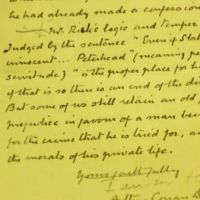 he had already made a confession
Mr Rick's logic and temper
Judged by the sentence "Even if Slat
innocent... Peterhead" (meaning pe
servitude) "is the proper place for h
of that is so there is an end of the di
But some of us still retain an old,
prejudice in favour of a man bein
for the crime that he is tried for, an
the morals of his private life.
Yours faithfully
Arthur Conan D